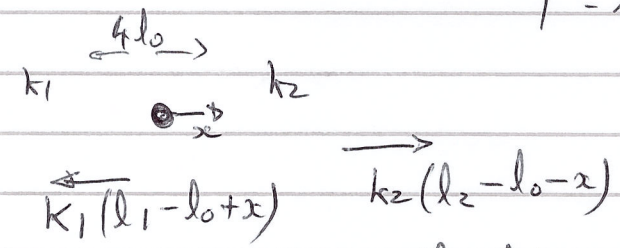 4l₀
k₁ k₂
x
K₁(l₁-l₀+x) k₂(l₂-l₀-x)